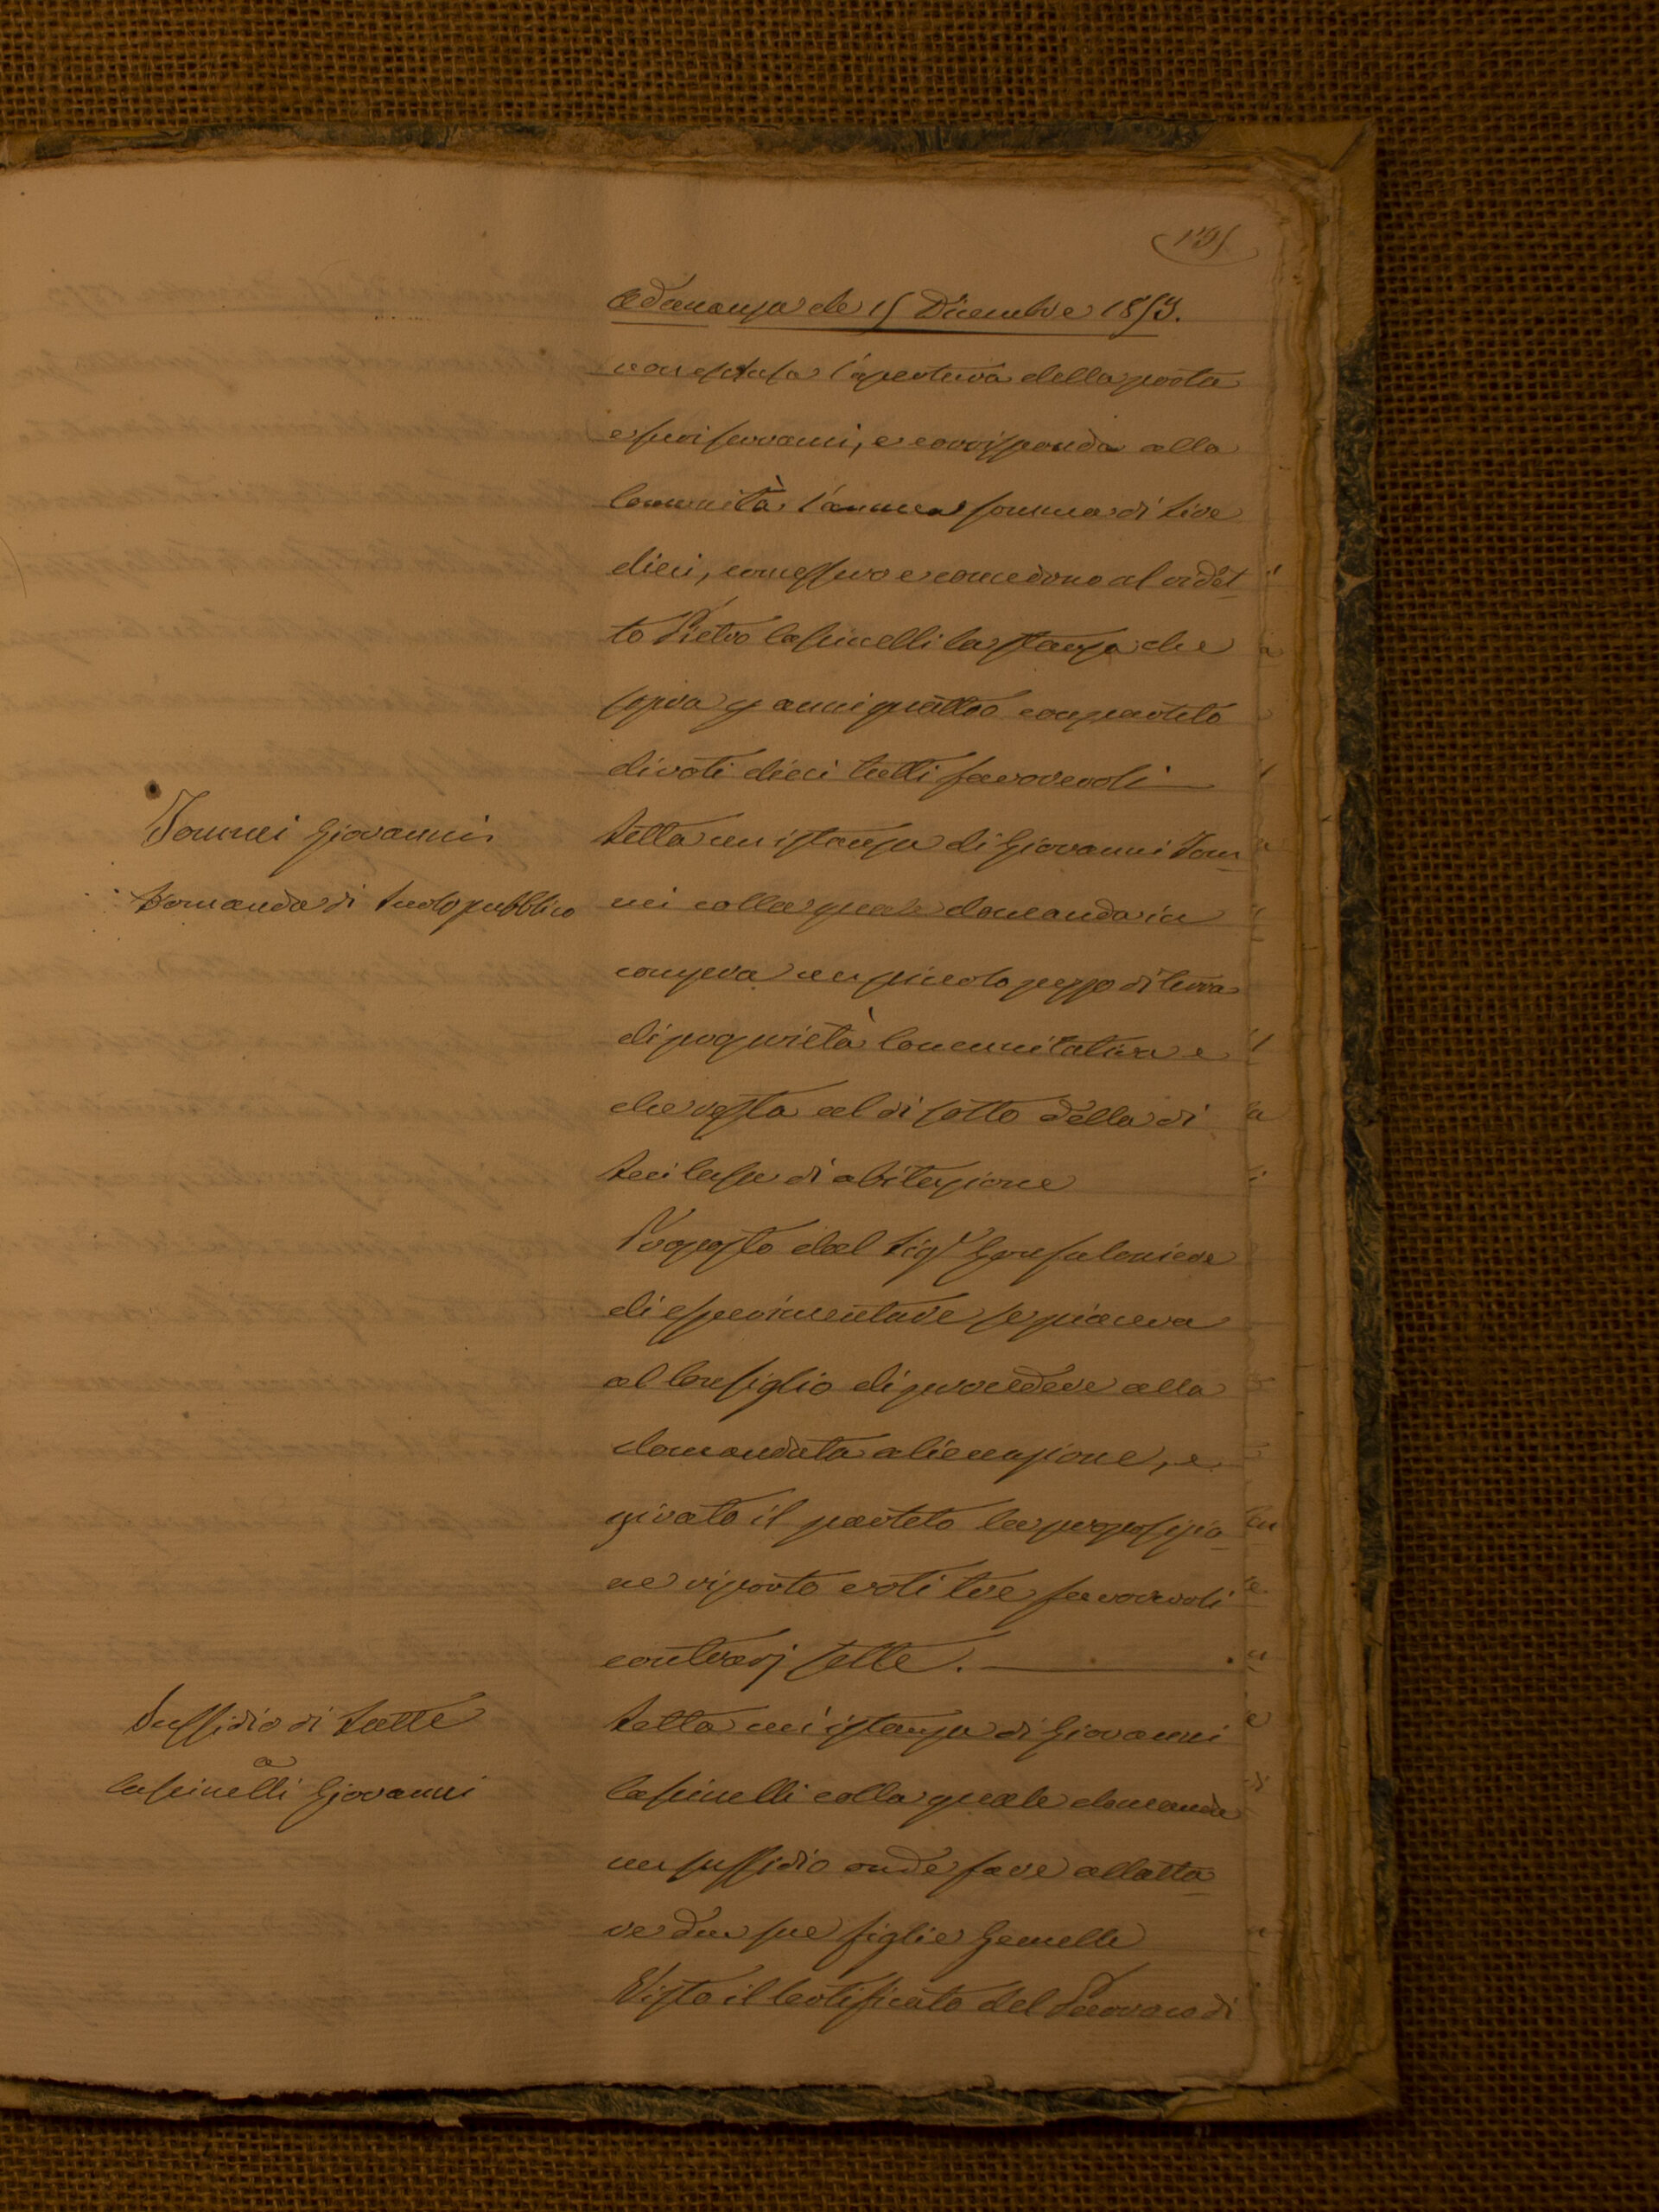 195
Adunanza de 15 Dicembre 1853.
non esclusa l'apertura della porta
e suoi serrami, e corrisponda alla
Comunità l'annua somma di Lire
dieci, concessero e concedono al ridet
to Pietro Cascinelli la stanza che
sopra p anni quattro con partito
di voti dieci tutti favorevoli
Tonnei Giovanni
Domanda di Suolo pubblico
Letta un istanza di Giovanni Ton
nei colla quale domanda in
compra un piccolo pezzo di terra
di proprietà Comunitativa e
che resta al di sotto della di
Lei Casa di abitazione
Proposto dal Sigr Gonfaloniere
di esperimentare se piaceva
al Consiglio di procedere alla
domandata alienazione, e
girato il partito la proposizio
ne riportò voti tre favorevoli
contrarj sette.
Sussidio di Latte
a
Cascinelli Giovanni
Letta un'istanza di Giovanni
Cascinelli colla quale domanda
un sussidio onde fare allatta
re due sue figlie Gemelle
Visto il Certificato del Parroco di